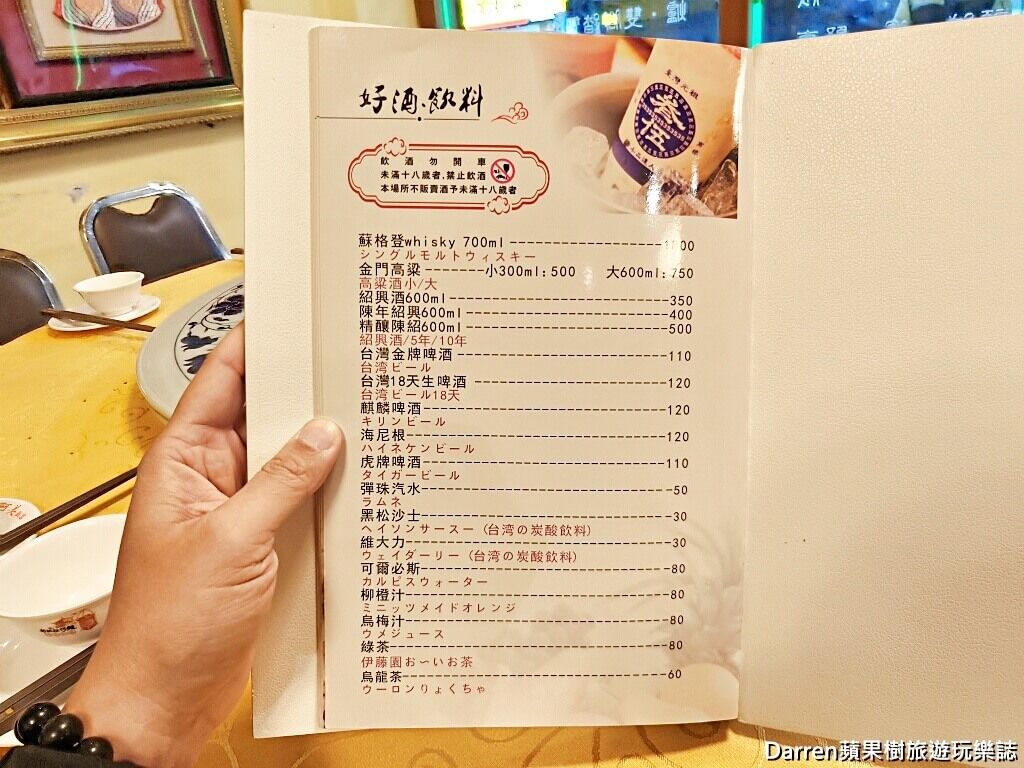 好酒、飲料
飲酒勿開車
未滿十八歲者,禁止飲酒
本場所不販賣酒予未滿十八歲者
叁伍
蘇格登whisky 700ml
シングルモルトウィスキー
金門高粱--------小300ml:500 大600ml:750
高粱酒小/大
紹興酒600ml------------------------350
陳年紹興600ml----------------------400
精釀陳紹600ml----------------------500
紹興酒/5年/10年
台灣金牌啤酒------------------------110
台湾ビール
台灣18天生啤酒----------------------120
台湾ビール18天
麒麟啤酒----------------------------120
キリンビール
海尼根------------------------------120
ハイネケンビール
虎牌啤酒----------------------------110
タイガービール
彈珠汽水-----------------------------50
ラムネ
黑松沙士-----------------------------30
ヘイソンサースー (台湾の炭酸飲料)
維大力-------------------------------30
ウェイダーリー (台湾の炭酸飲料)
可爾必斯-----------------------------80
カルピスウォーター
柳橙汁-------------------------------80
ミニッツメイドオレンジ
烏梅汁-------------------------------80
ウメジュース
綠茶---------------------------------80
伊藤園お〜いお茶
烏龍茶-------------------------------60
ウーロンりょくちゃ
Darren蘋果樹旅遊玩樂誌